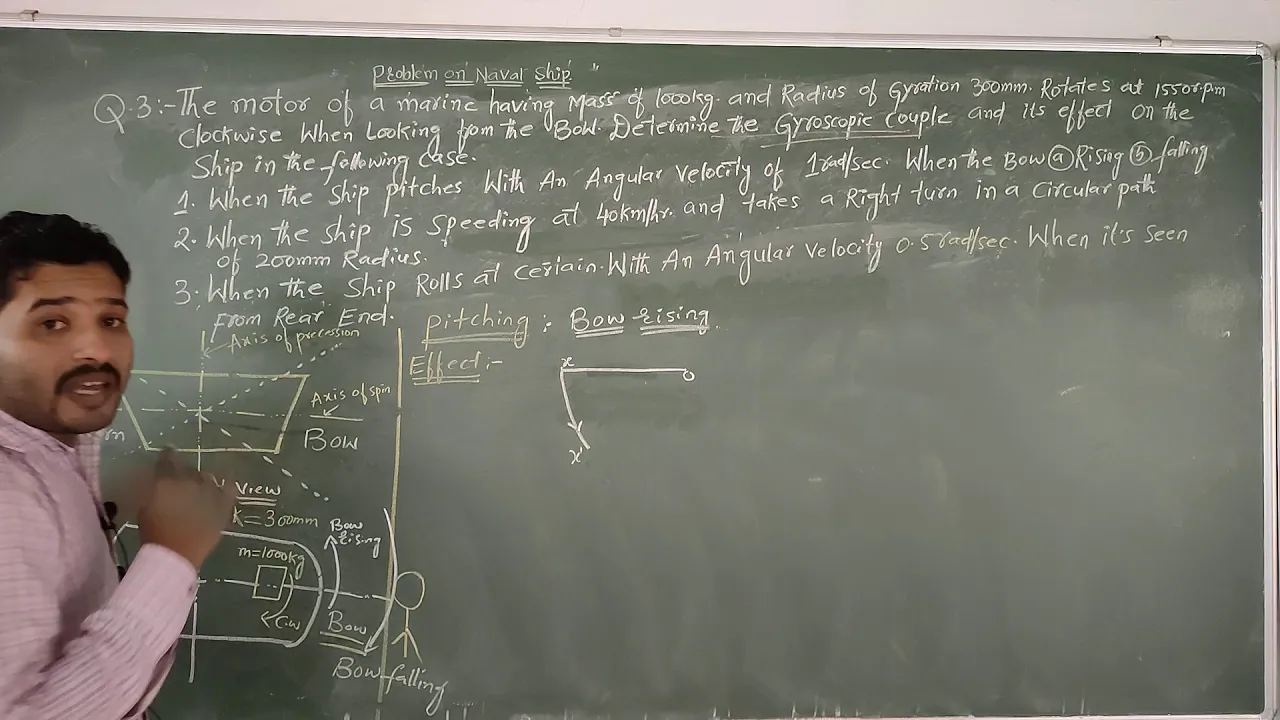 Problem on Naval Ship
Q.3:- The motor of a marine having Mass of 1000kg. and Radius of Gyration 300mm. Rotates at 1550rpm
Clockwise When Looking from the Bow. Determine the Gyroscopic Couple and its effect on the
Ship in the following case.
1. When the Ship pitches With An Angular Velocity of 1rad/sec. When the Bow (a) Rising (b) falling
2. When the Ship is Speeding at 40km/hr. and takes a Right turn in a Circular path
of 200mm Radius.
3. When the Ship Rolls at Certain. With An Angular Velocity 0.5 rad/sec. When it's Seen
From Rear End.
Axis of precession
Axis of spin
Bow
View
K=300mm
m=1000kg
C.W
Bow
Rising
Bow
Bow falling
Pitching : Bow rising
Effect :-
x
o
x'